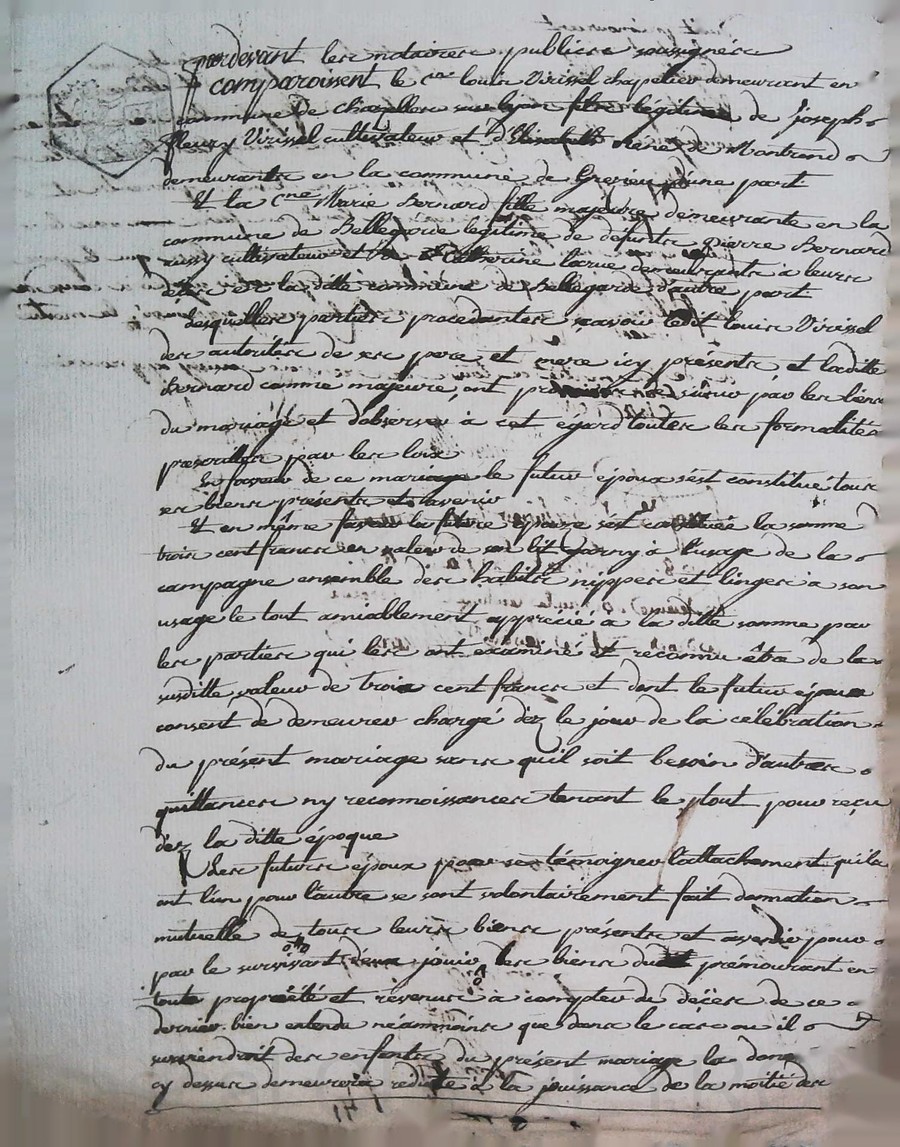 pardevant les notaires publics soussignés
comparoissent le c.en louis Virissel chapelier demeurant en
commune de chazelles sur lyon fils legitime de joseph
fleury Virissel cultivateur et d'Elisabeth de Montrond
demeurants en la commune de Grezieu d'une part
Et la c.nne Marie Bernard fille majeure demeurante en la
commune de Bellegarde légitime de défunts pierre Bernard
cultivateur et Catherine larue demeurants à leurs
décès en la ditte commune de Bellegarde d'autre part
Lesquelles parties procedantes savoir ledit louis Virissel
des autorités de ses pere et mere icy présents et laditte
Bernard comme majeure, ont promis s'unir par les liens
du mariage et d'observer à cet egard toutes les formalités
prescrittes par les loix
En faveur de ce mariage le futur époux s'est constitué tous
ses biens présents et avenir
Et en même faveur la future épouse s'est constituée la somme
trois cent francs en valeur de son lit garny à l'usage de la
campagne ensemble des habits nippes et linges à son
usage le tout amiablement apprécié à la ditte somme par
les parties qui les ont examiné et reconnu être de la
susditte valeur de trois cent francs et dont le futur époux
consent de demeurer chargé dez le jour de la célébration
du présent mariage sans qu'il soit besoin d'autres
quittances ny reconnoissances tenant le tout pour reçu
dez la ditte époque
Les futurs époux pour se témoigner l'attachement qu'ils
ont l'un pour l'autre se sont volontairement fait donnation
mutuelle de tous leurs biens présents et avenir pour
par le survivant d'eux jouir les biens du prémourant en
toute propriété et revenus à compter du décès de ce
dernier bien entendu néammoins que dans le cas ou il
surviendroit des enfants du présent mariage la don
cy dessus demeurera reduite à la jouissance de la moitié des